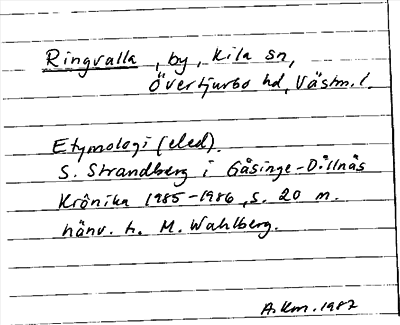 Ringvalla, by, Kila sn,
Övertjurbo hd, Västm. l.
Etymologi (eled).
S. Strandberg i Gåsinge-Dillnäs
Krönika 1985-1986, s. 20 m.
hänv. t. M. Wahlberg.
A.Km. 1987